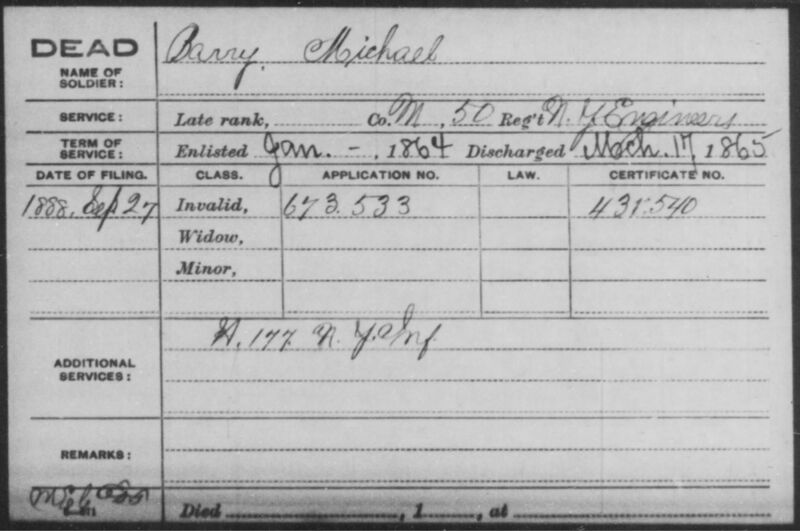 DEAD
NAME OF SOLDIER: Barry, Michael
SERVICE: Late rank, Co. M, 50 Reg't N. Y. Engineers
TERM OF SERVICE: Enlisted Jan. - , 1864 Discharged Mch. 17, 1865
DATE OF FILING. CLASS. APPLICATION NO. LAW. CERTIFICATE NO.
1888, Sep 27 Invalid, 673.533 431.540
Widow,
Minor,
ADDITIONAL SERVICES: H, 177. N. Y. Inf.
REMARKS:
Died , 1 , at